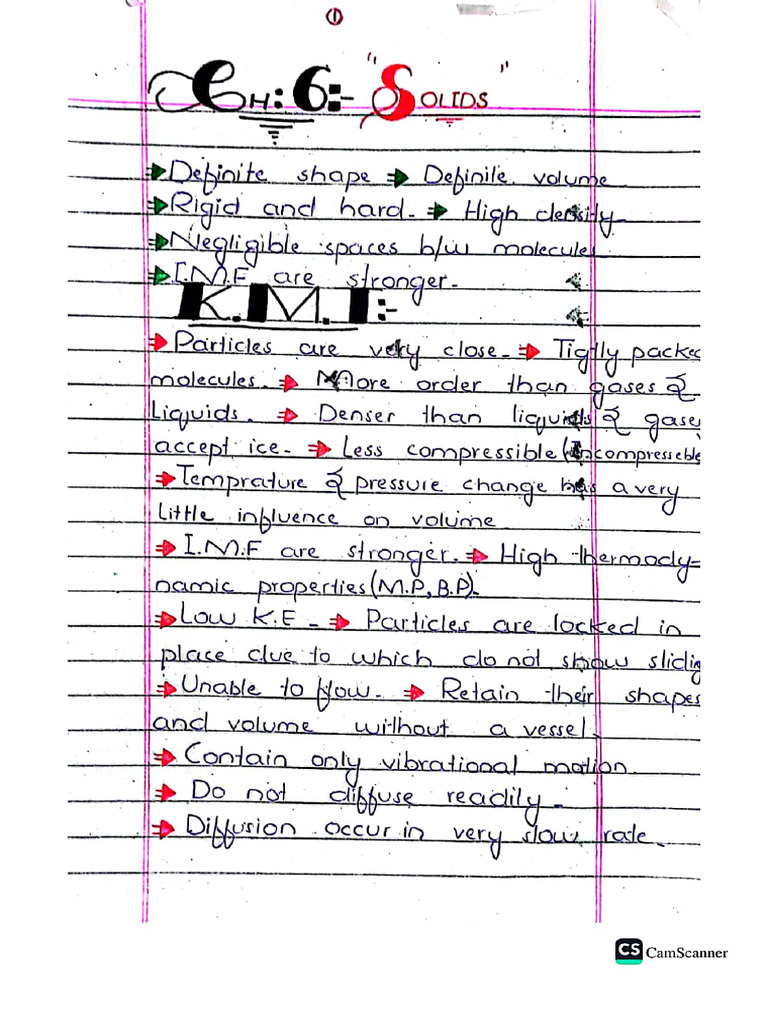 ①
CH: 6:- "SOLIDS"
⇒ Definite shape ⇒ Definile volume
⇒ Rigid and hard. ⇒ High density
⇒ Negligible spaces b/w molecules
⇒ I.M.F are stronger.
K.M.T:-
⇒ Particles are very close. ⇒ Tigtly packed
molecules. ⇒ More order than gases &
Liquids. ⇒ Denser than liquids & gases
accept ice. ⇒ Less compressible (Incompresseble
⇒ Temprature & pressure change has a very
little influence on volume
⇒ I.M.F are stronger. ⇒ High thermody=
namic properties (M.P, B.P).
⇒ Low K.E - ⇒ Particles are locked in
place due to which do not show sliding
⇒ Unable to flow. ⇒ Retain their shapes
and volume without a vessel.
⇒ Contain only vibrational motion.
⇒ Do not diffuse readily.
⇒ Diffusion occur in very slow rate.
CS CamScanner